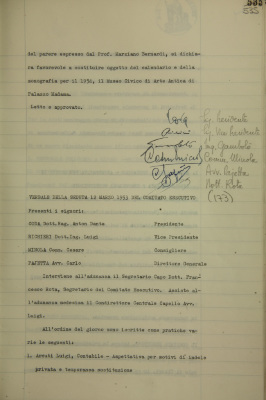 del parere espresso dal Prof. Marziano Bernardi, si dichia-
ra favorevole a costituire oggetto del calendario e della
monografia per il 1954, il Museo Civico di Arte Antica di
Palazzo Madama.
Letto e approvato.
(173)
VERBALE DELLA SEDUTA 12 MARZO 1953 DEL COMITATO ESECUTIVO
Presenti i signori:
Dott.Rag. Anton Dante Presidente
Dott.Ing. Luigi Vice Presidente
Comm. Cesare Consigliere
Avv. Dario Direttore Generale
Interviene all'adunanza il Segretario Capo Dott. Fran-
cesco Rota, Segretario del Comitato Esecutivo. Assiste al-
l'adunanza medesima il Condirettore Centrale Capello Avv.
Luigi.
All'ordine del giorno sono iscritte come pratiche va-
rie le seguenti:
1. Luigi, Contabile - Aspettativa per motivi di salute
privata e temporanea sostituzione